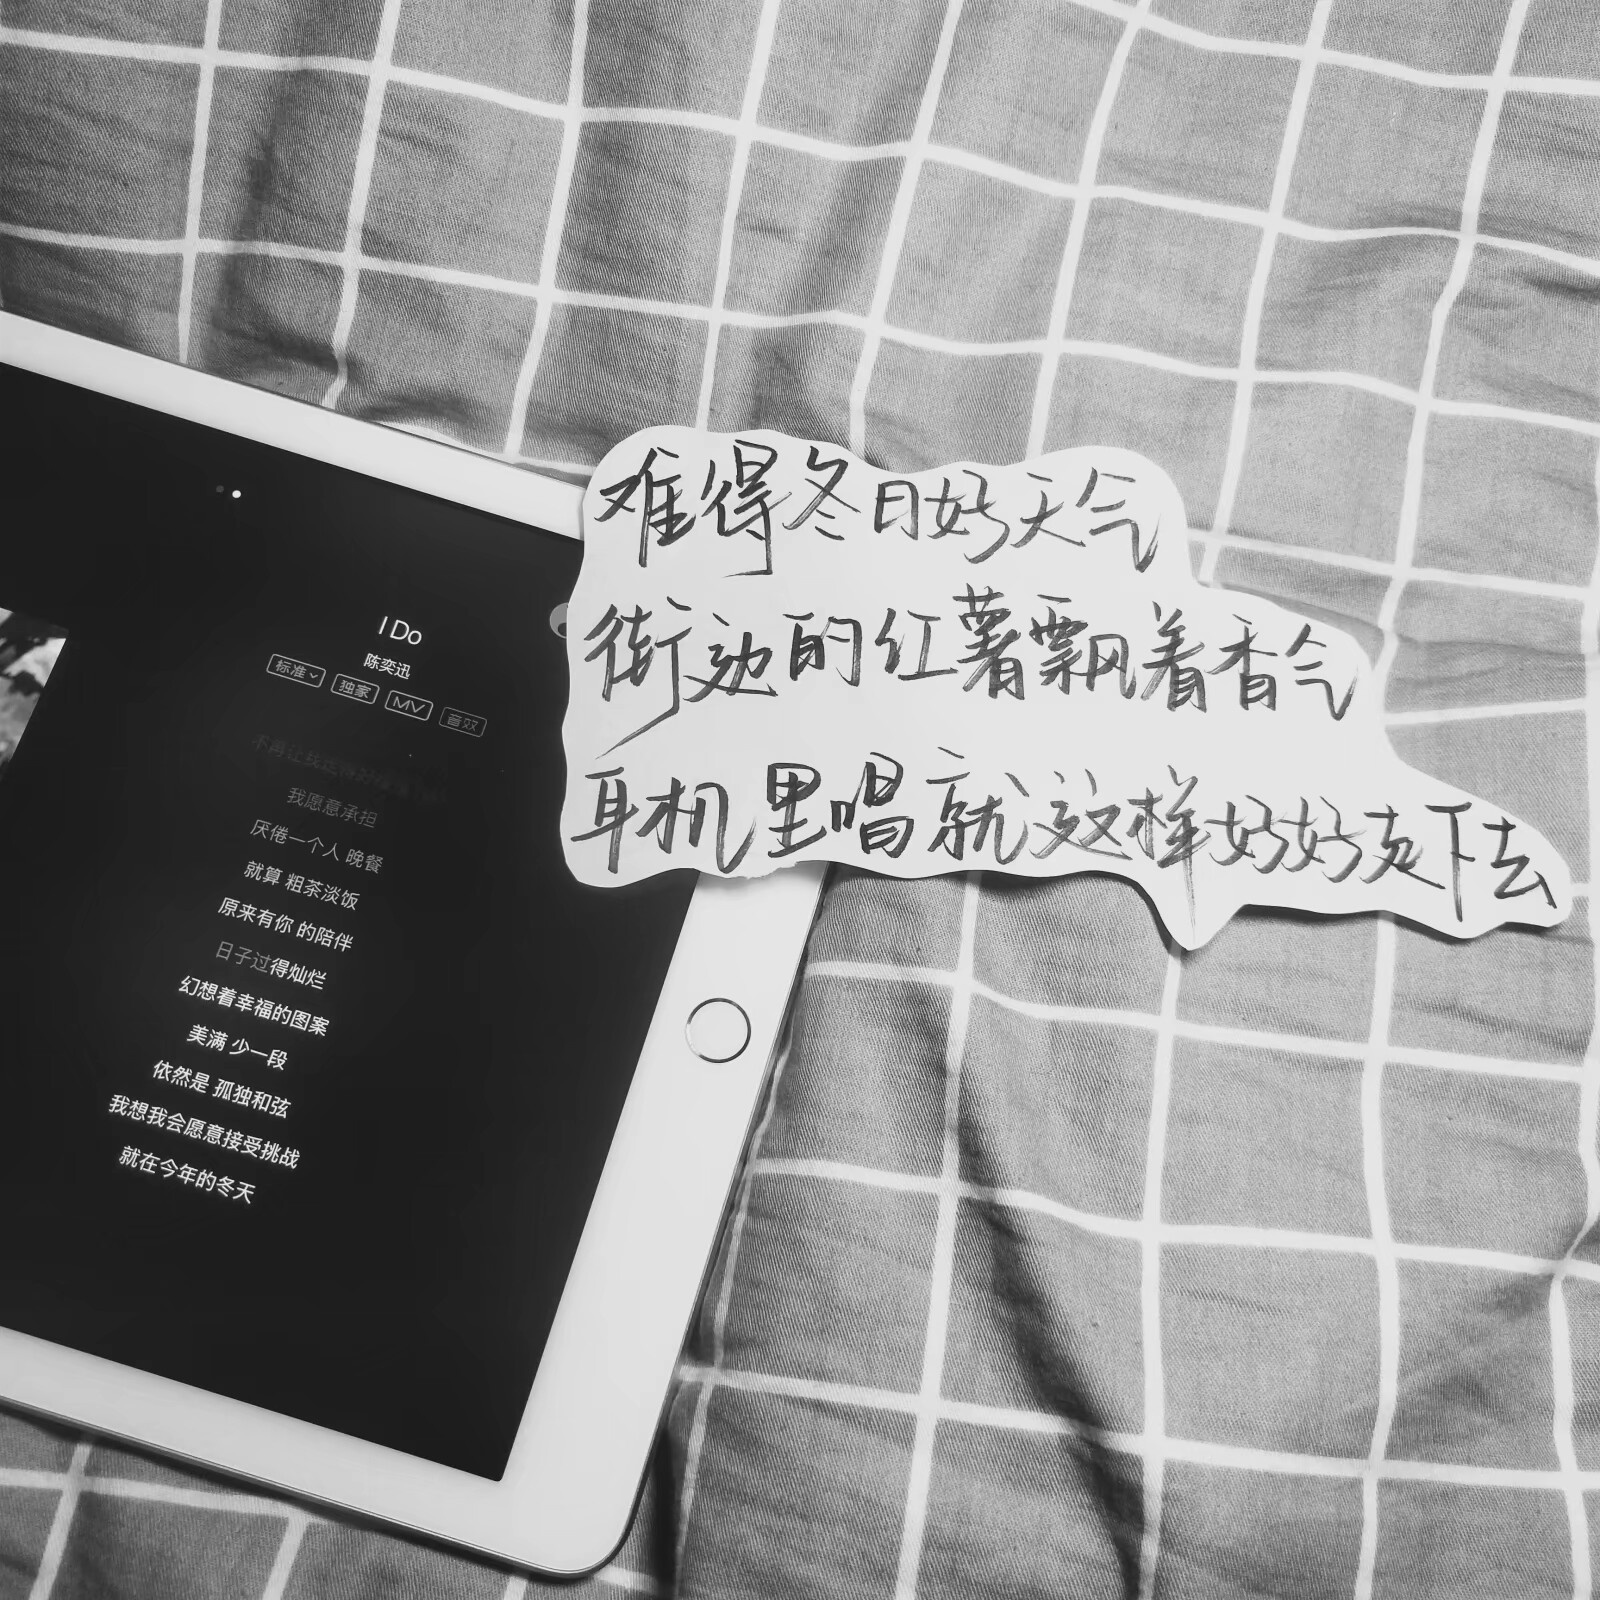 I Do
陈奕迅
标准 独家 MV 音效
我愿意承担
厌倦一个人 晚餐
就算 粗茶淡饭
原来有你 的陪伴
日子过得灿烂
幻想着幸福的图案
美满 少一段
依然是 孤独和弦
我想我会愿意接受挑战
就在今年的冬天
难得冬日好天气
街边的红薯飘着香气
耳机里唱就这样好好走下去